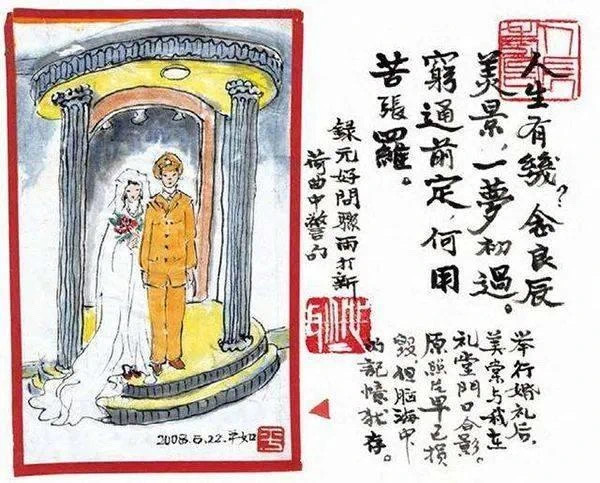 人生有幾？念良辰
美景，一夢初過。
窮通前定，何用
苦張羅。
錄元好問驟雨打新
荷曲中警句
举行婚礼后，
美棠与我在
礼堂門口合影。
原照片早已损
毁，但脑海中
的記憶犹存。
2008.5.22.平如
平